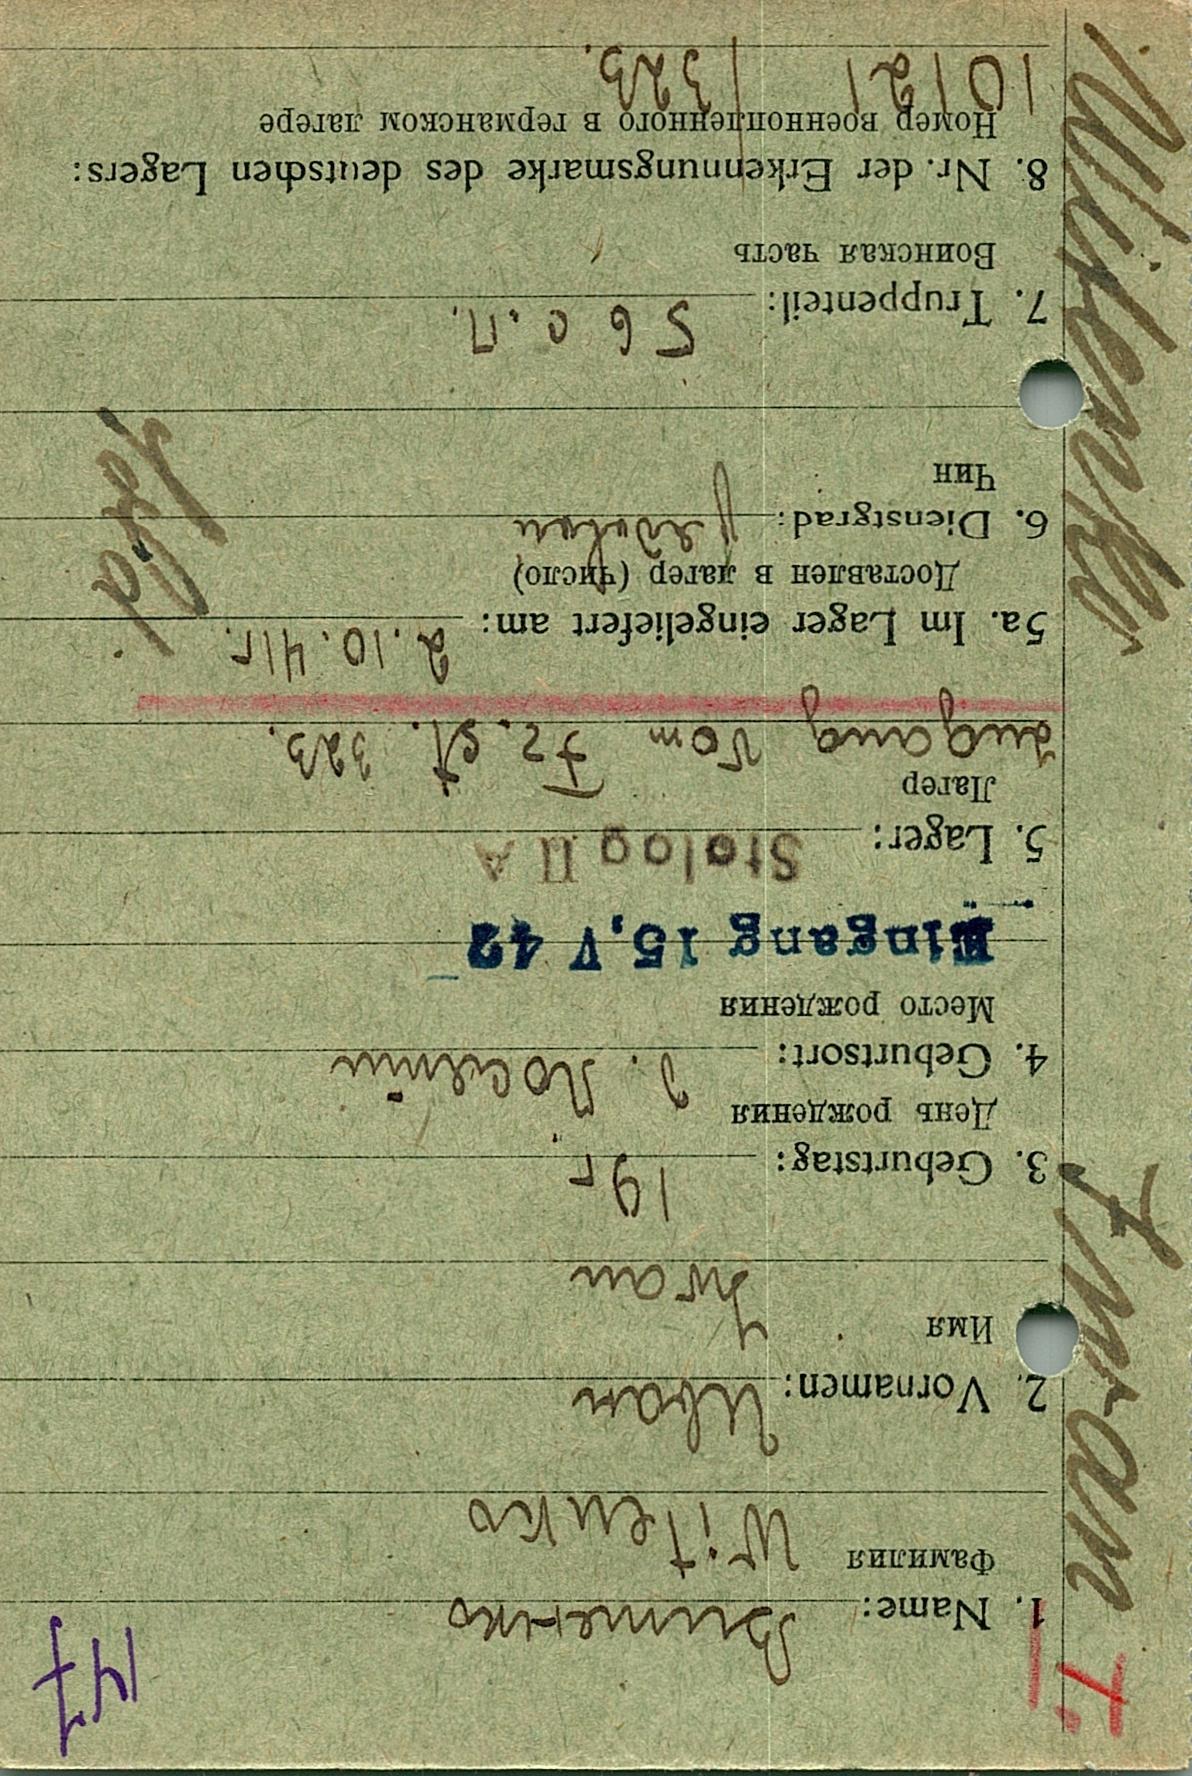 147
1. Name: Витенко
Фамилия
Witenko
2. Vornamen: Иван
Имя
Iwan
3. Geburtstag: 19 г.
День рождения
4. Geburtsort:
Место рождения
Eingang 15. V 42
5. Lager: Stalag II A
Лагер
Zugang vom Fr. St. 323.
5a. Im Lager eingeliefert am: 2.10.41 г.
Доставлен в лагер (число)
6. Dienstgrad:
Чин
Sold
7. Truppenteil: 56 с.п.
Воинская часть
8. Nr. der Erkennungsmarke des deutschen Lagers:
Номер военнопленного в германском лагере
10121 / 323.
Witenko Iwan